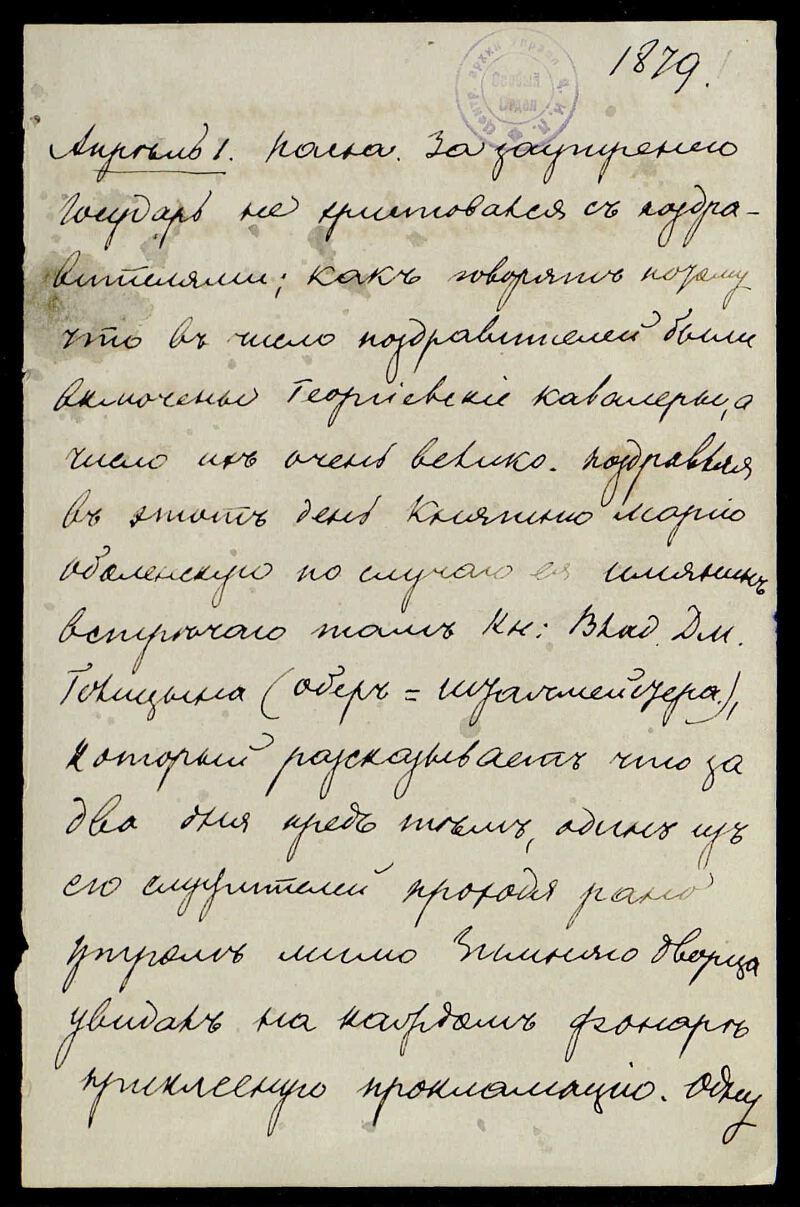 1879.
Центр. архив Управл. Ф. И. Л.
Особый
Отдел
Апрѣль 1. Пасха. За заутренею
Государь не христовался съ поздра-
вителями; какъ говорятъ потому
что въ число поздравителей были
включены Георгіевскіе кавалеры, а
число ихъ очень велико. Поздравляя
въ этотъ день Княгиню Марію
Оболенскую по случаю ея имянинъ
встрѣчаю тамъ Кн: Влад. Дм.
Голицына (оберъ=шталмейстера),
который разсказываетъ что за
два дня предъ тѣмъ, одинъ изъ
его служителей проходя рано
утромъ мимо Зимняго дворца
увидалъ на каждомъ фонарѣ
приклееную прокламацію. Одну